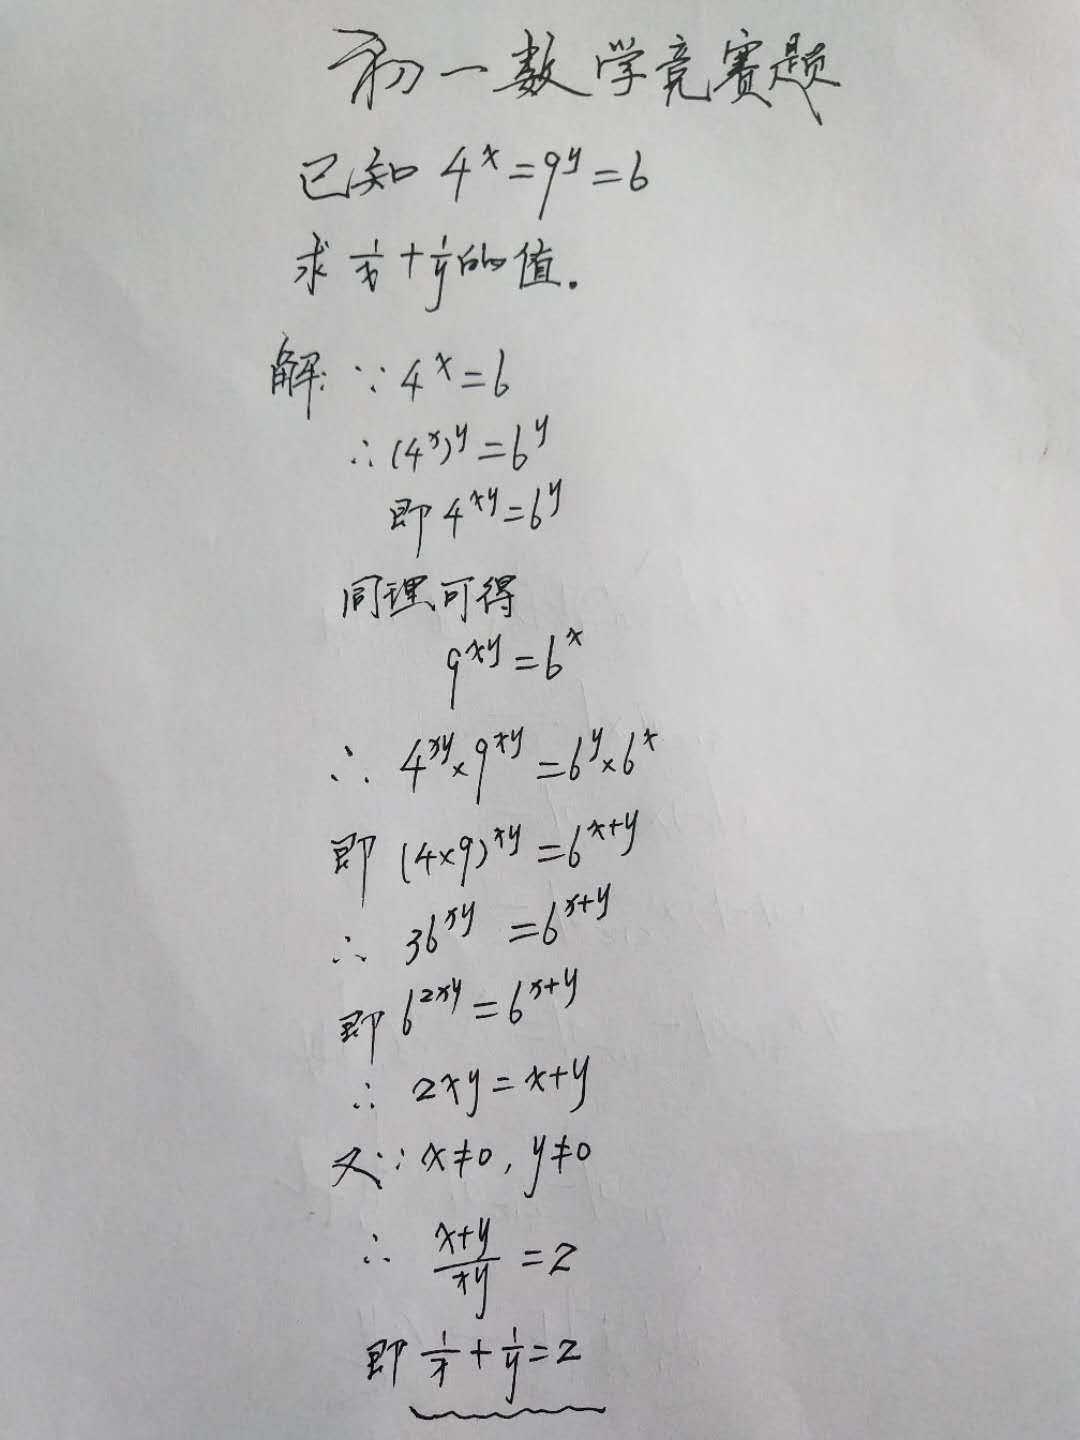 初一数学竞赛题
已知 4^x=9^y=6
求 1/x+1/y的值.
解: ∵4^x=6
∴(4^x)^y=6^y
即 4^xy=6^y
同理可得
9^xy=6^x
∴ 4^xy×9^xy=6^y×6^x
即 (4×9)^xy=6^x+y
∴ 36^xy=6^x+y
即 6^2xy=6^x+y
∴ 2xy=x+y
又∵x≠0, y≠0
∴ x+y/xy=2
即 1/x+1/y=2